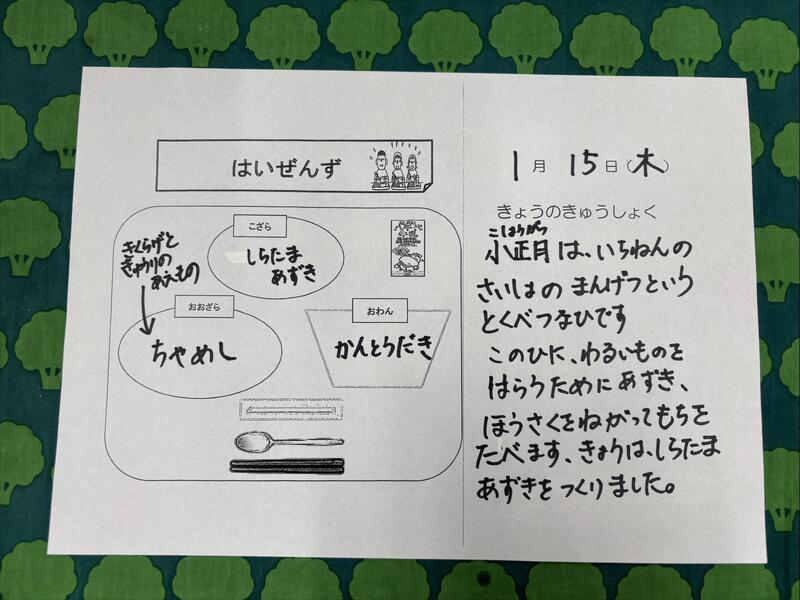 はいぜんず
こざら
しらたま
あずき
きくらげと
きゅうりの
あえもの
おおざら
ちゃめし
おわん
かんとうだき
1月 15日(木)
きょうのきゅうしょく
こしょうがつ
小正月は、いちねんの
さいしょの まんげつという
とくべつなひです
このひに、わるいものを
はらうために あずき、
ほうさくをねがってもちを
たべます、きょうは、しらたま
あずきを つくりました。